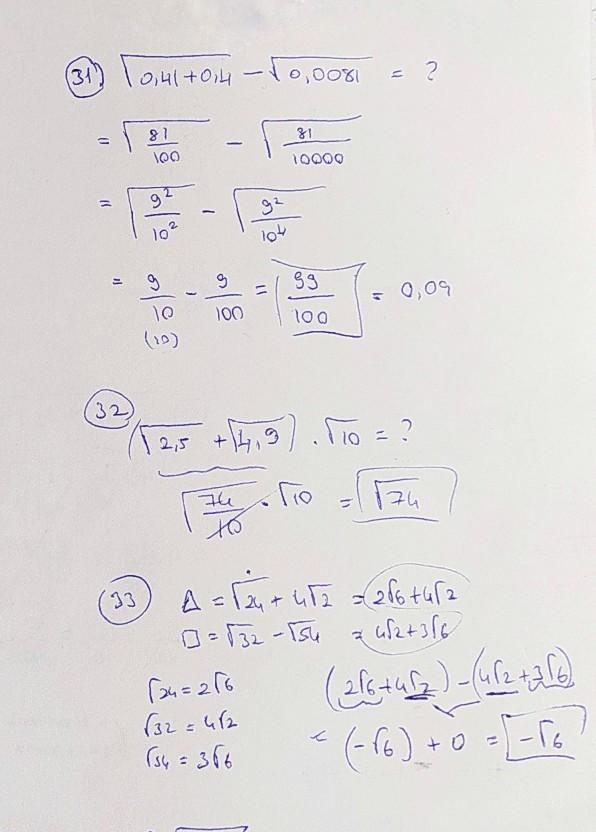 31) √(0,41+0,4) - √(0,0081) = ?
= √(81/100) - √(81/10000)
= √(9²/10²) - √(9²/10⁴)
= 9/10 - 9/100 = 99/100 = 0,09
(10)
32
(√2,5 + √4,9) . √10 = ?
√(74/10) . √10 = √74
33 △ = √24 + 4√2 = 2√6+4√2
□ = √32 - √54 = 4√2+3√6
√24 = 2√6 (2√6+4√2) - (4√2+3√6)
√32 = 4√2
√54 = 3√6 = (-√6) + 0 = -√6